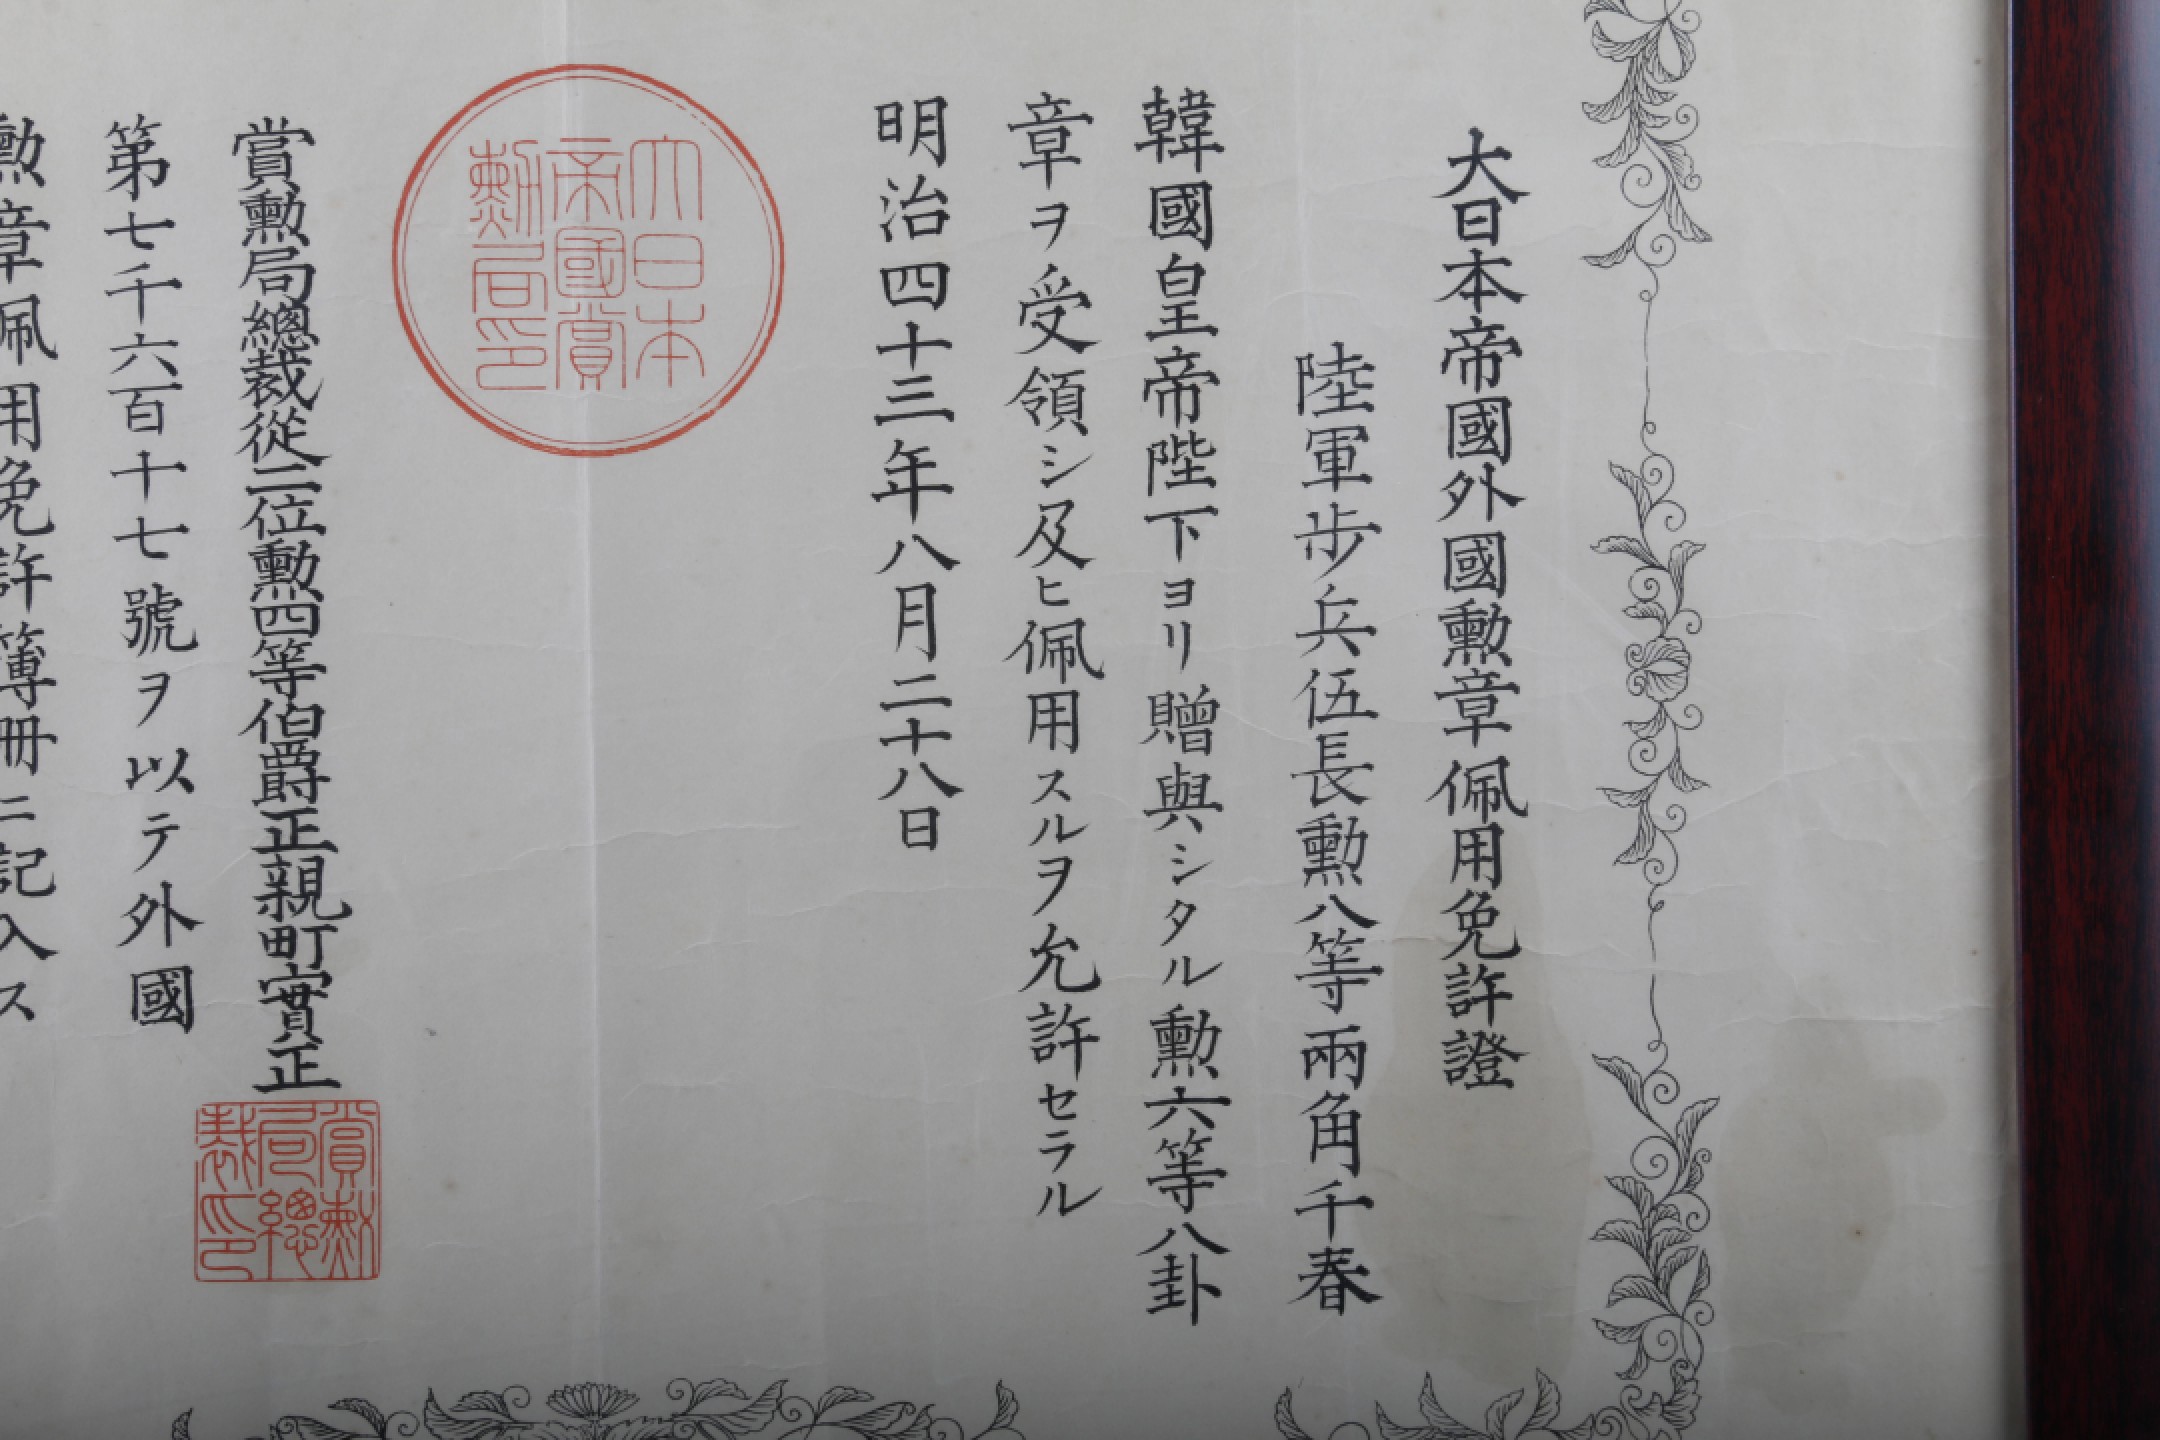 大日本帝國外國勲章佩用免許證
陸軍歩兵伍長勲八等兩角千春
韓國皇帝陛下ヨリ贈與シタル勲六等八卦
章ヲ受領シ及ヒ佩用スルヲ允許セラル
明治四十三年八月二十八日
大日本
帝國賞
勲局印
賞勲局總裁從二位勲四等伯爵正親町實正
賞勲
局總
裁印
第七千六百十七號ヲ以テ外國
勲章佩用免許簿册ニ記入ス